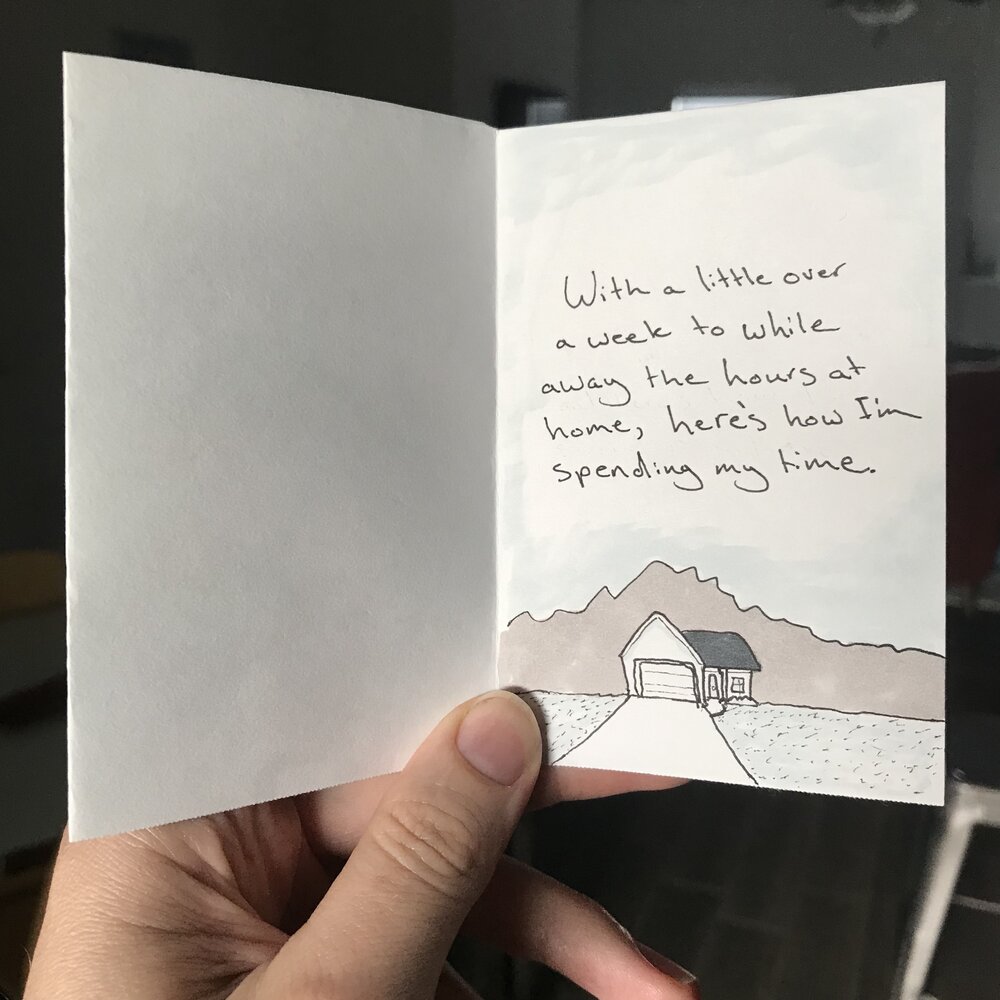 With a little over
a week to while
away the hours at
home, here's how I'm
spending my time.